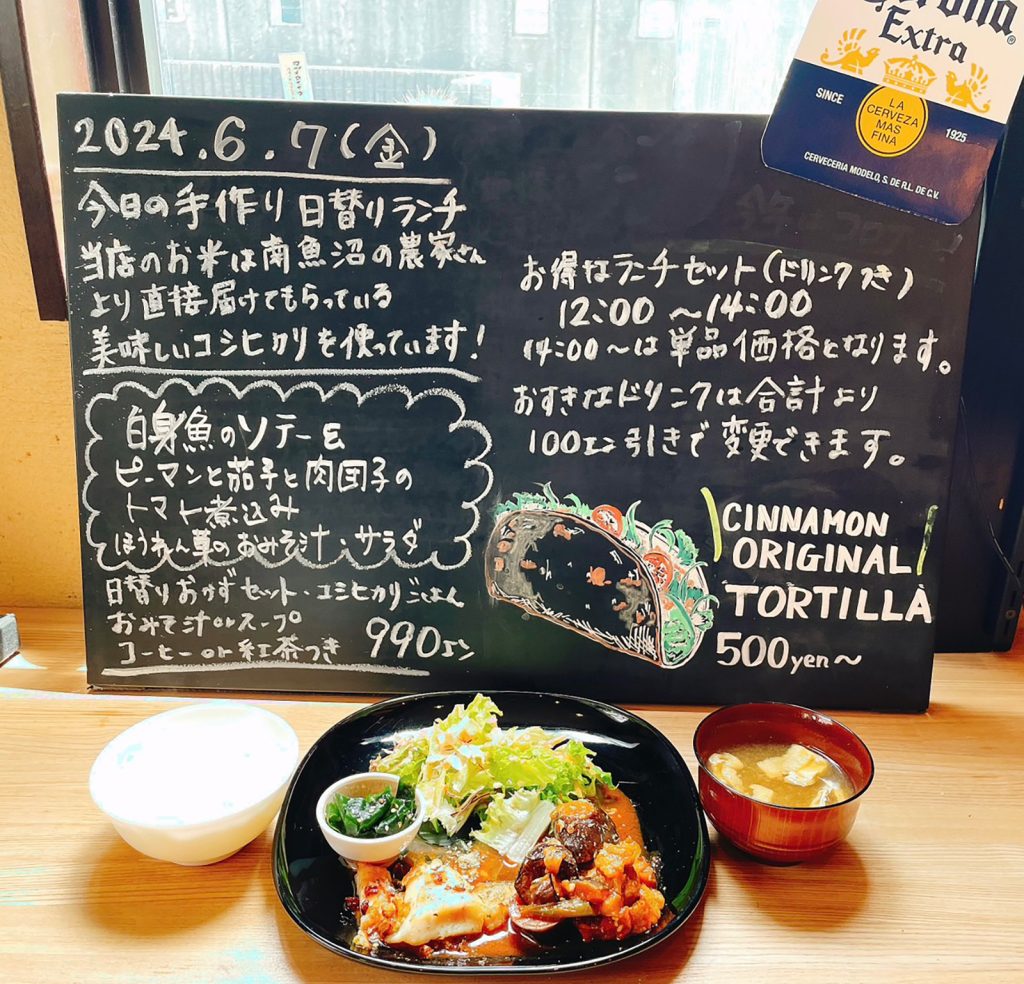 2024.6.7(金)
今日の手作り 日替りランチ
当店のお米は南魚沼の農家さん
より直接届けてもらっている
美味しいコシヒカリを使っています!
白身魚のソテーと
ピーマンと茄子と肉団子の
トマト煮込み
ほうれん草のおみそ汁・サラダ
日替りおかずセット・コシヒカリごはん
おみそ汁orスープ
コーヒーor紅茶つき 990エン
お得なランチセット(ドリンクつき)
12:00～14:00
14:00～は単品価格となります。
おすきなドリンクは合計より
100エン引きで変更できます。
CINNAMON
ORIGINAL
TORTILLA
500yen～
Corona
Extra
SINCE
LA
CERVEZA
MAS
FINA
1925
CERVECERIA MODELO, S. DE R.L. DE C.V.